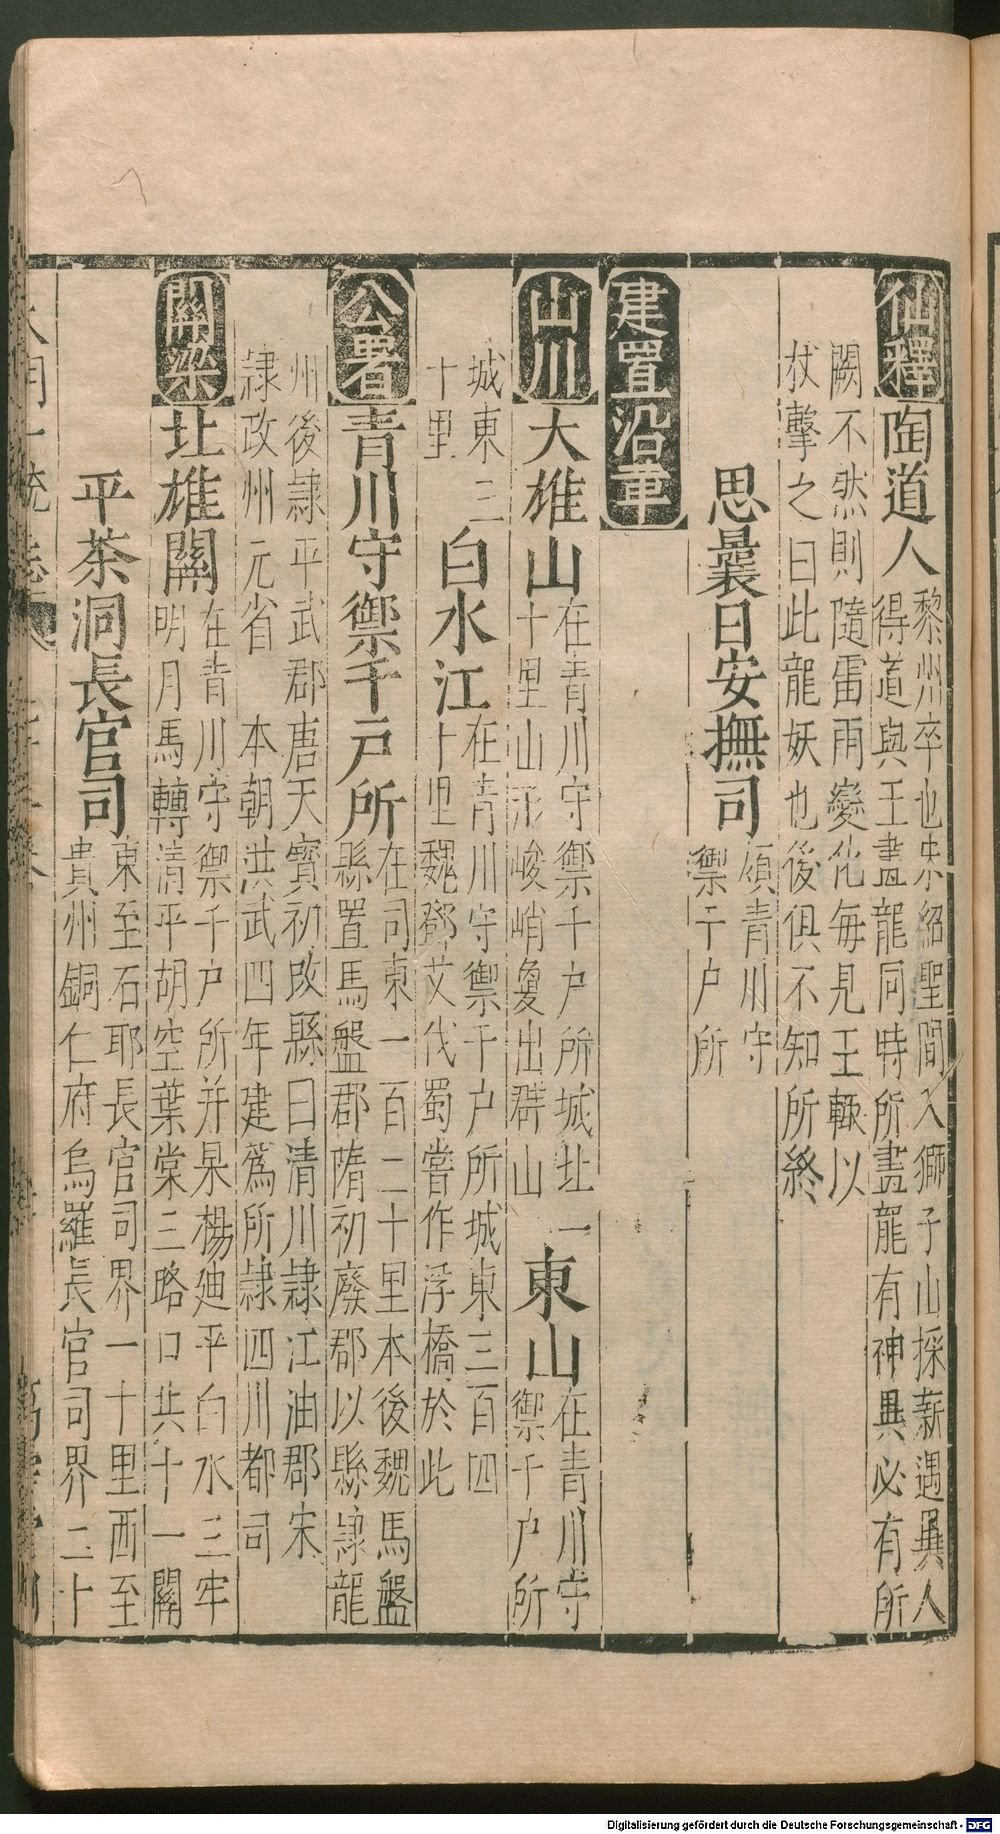 仙釋 陶道人 黎州卒也宋紹聖間入獅子山採薪遇異人
得道與王畫龍同時所畫龍有神異必有所
闕不然則隨雷雨變化每見王輒以
杖擊之曰此龍妖也後俱不知所終
思曩日安撫司 領青川守
禦千戶所
建置沿革
山川 大雄山 在青川守禦千戶所城北一
十里山形峻峭敻出群山 東山 在青川守
禦千戶所
城東三
十里 白水江 在青川守禦千戶所城東三百四
十里魏鄧艾伐蜀嘗作浮橋於此
公署 青川守禦千戶所 在司東一百二十里本後魏馬盤
縣置馬盤郡隋初廢郡以縣隷龍
州後隷平武郡唐天寶初改縣曰清川隷江油郡宋
隷政州元省 本朝洪武四年建爲所隷四川都司
關梁 北雄關 在青川守禦千戶所并杲楊迪平白水三牢
明月馬轉清平胡空葉棠三路口共十一關
平茶洞長官司 東至石耶長官司界一十里西至
貴州銅仁府烏羅長官司界二十
大明一統志
Digitalisierung gefördert durch die Deutsche Forschungsgemeinschaft - DFG